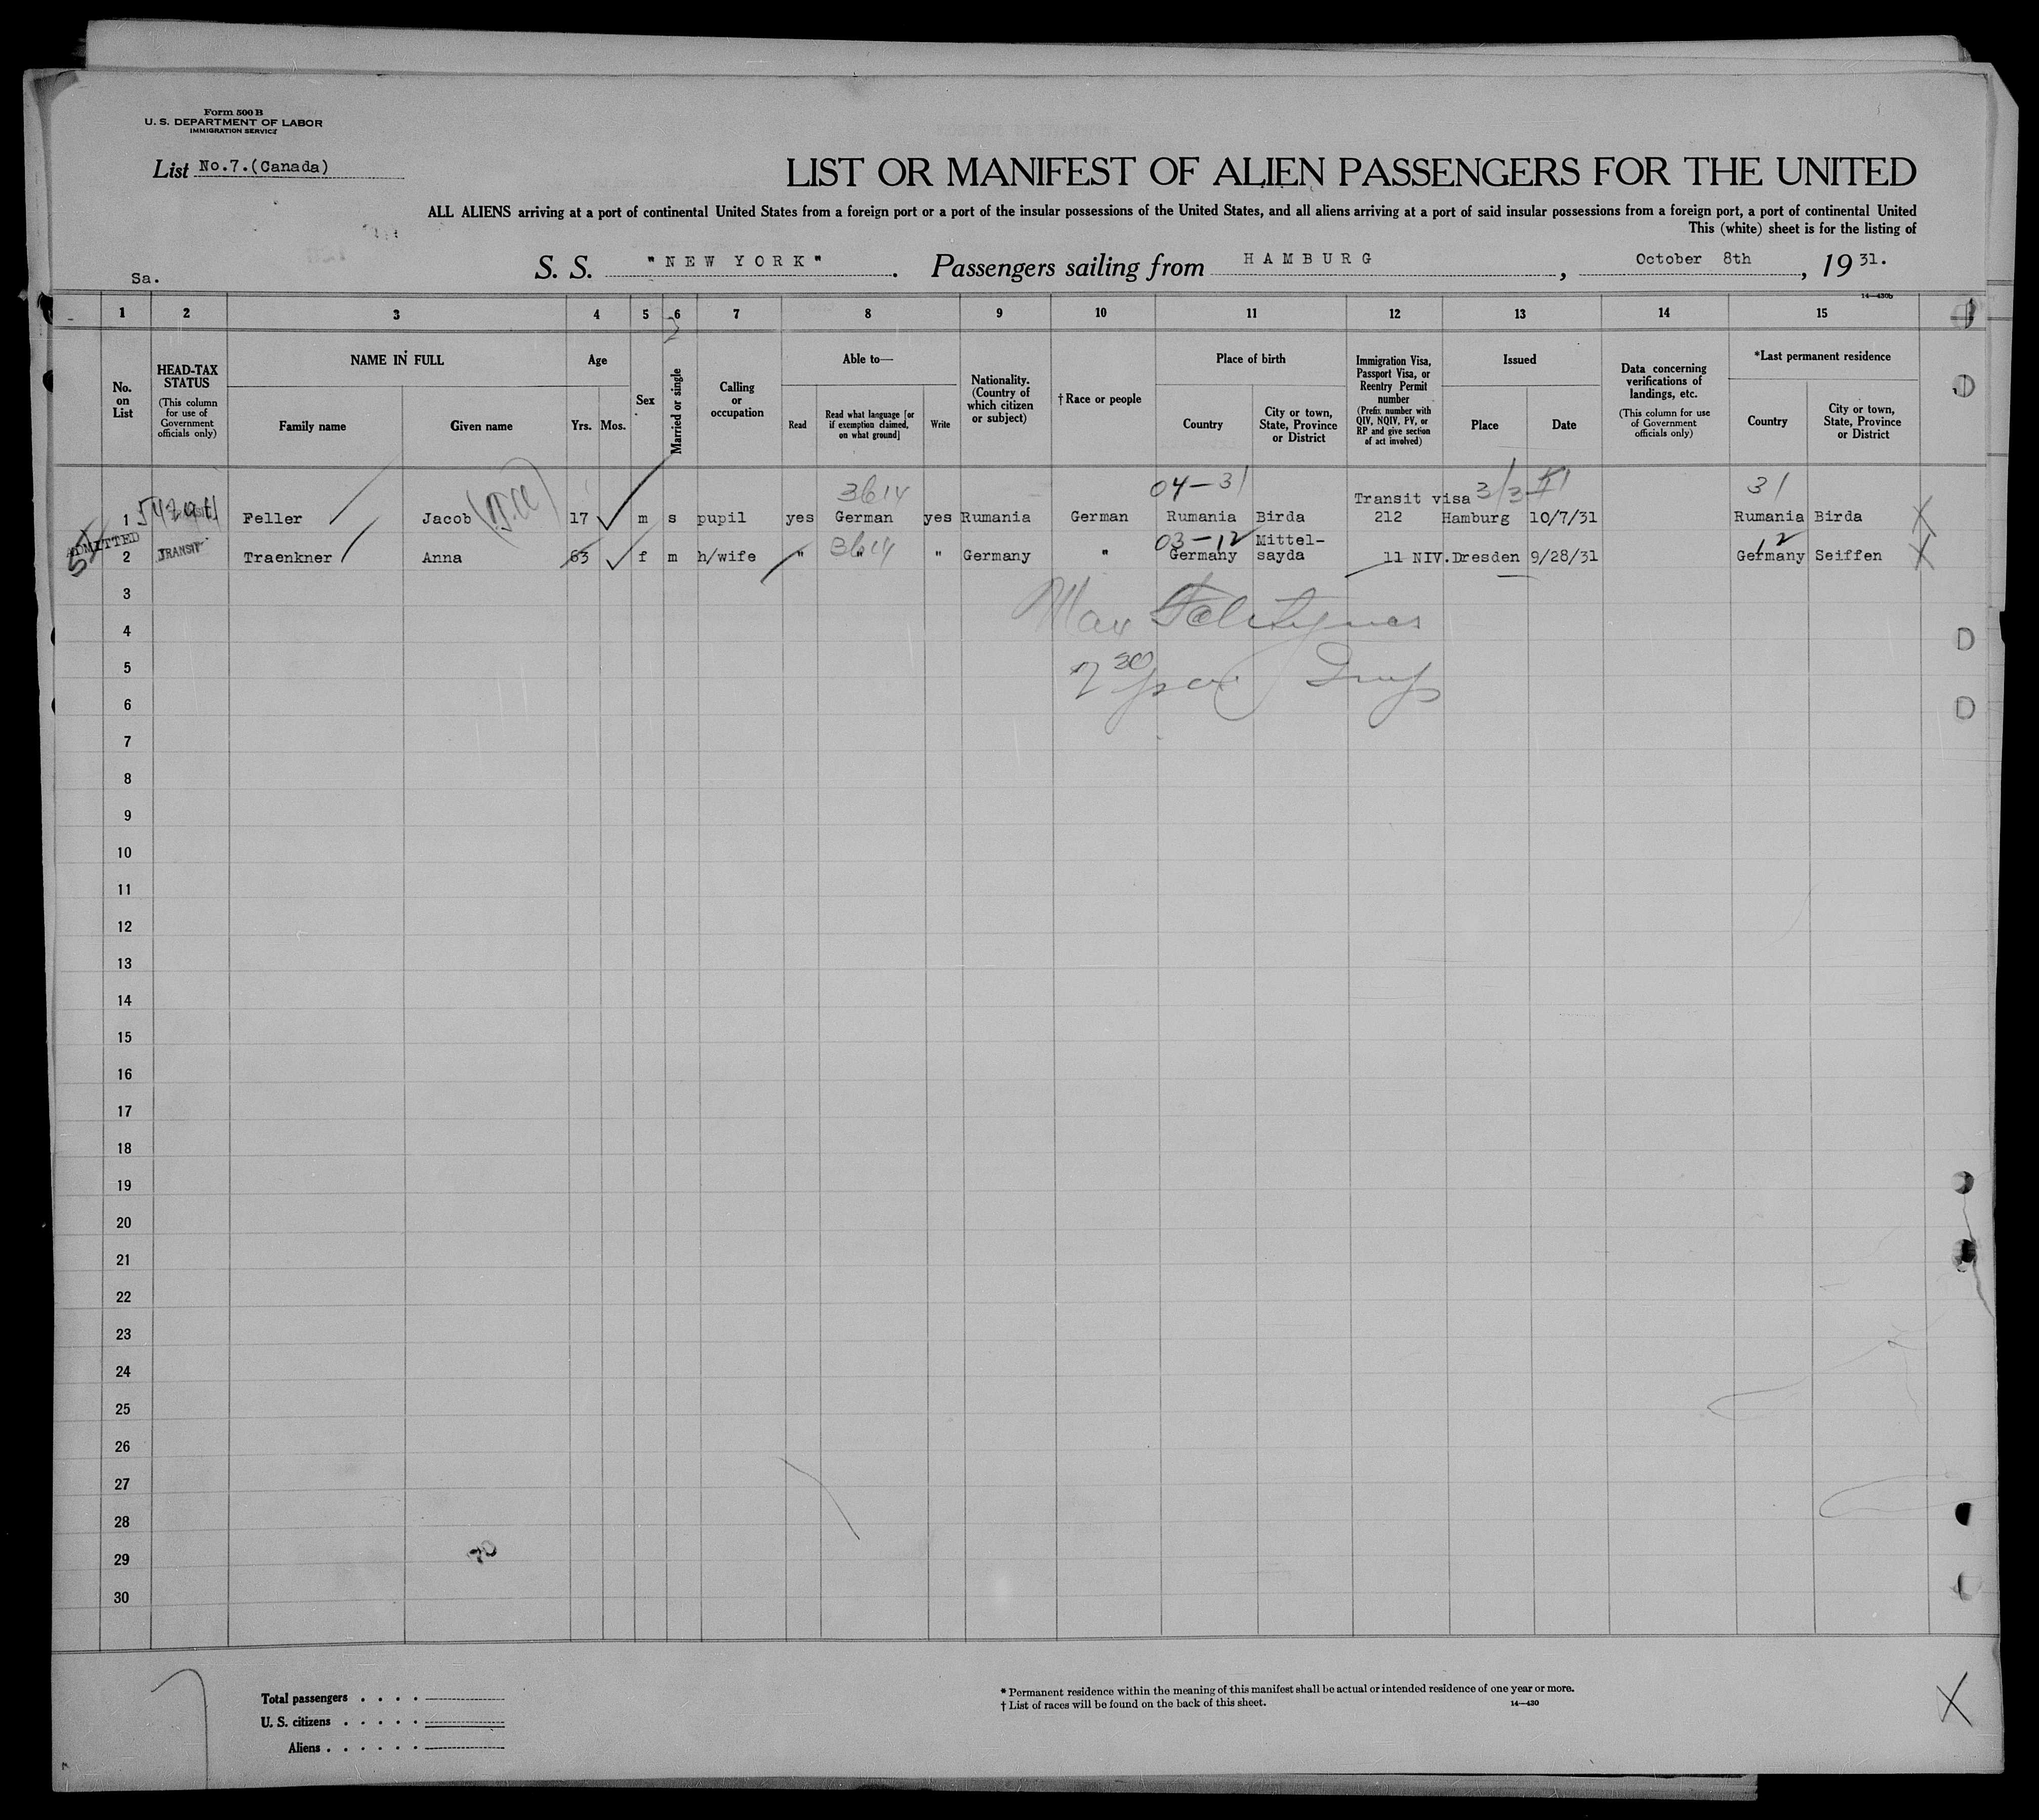 Form 500 B
U. S. DEPARTMENT OF LABOR
IMMIGRATION SERVICE
List No.7.(Canada)
LIST OR MANIFEST OF ALIEN PASSENGERS FOR THE UNITED
ALL ALIENS arriving at a port of continental United States from a foreign port or a port of the insular possessions of the United States, and all aliens arriving at a port of said insular possessions from a foreign port, a port of continental United
This (white) sheet is for the listing of
Sa.
S. S. "NEW YORK". Passengers sailing from HAMBURG, October 8th, 1931.
14—430b
1 2 3 4 5 6 7 8 9 10 11 12 13 14 15
No. on List
HEAD-TAX STATUS
(This column for use of Government officials only)
NAME IN FULL
Family name
Given name
Age
Yrs.
Mos.
Sex
Married or single
Calling or occupation
Able to—
Read
Read what language [or if exemption claimed, on what ground]
Write
Nationality. (Country of which citizen or subject)
† Race or people
Place of birth
Country
City or town, State, Province or District
Immigration Visa, Passport Visa, or Reentry Permit number
(Prefix number with QIV, NQIV, PV, or RP and give section of act involved)
Issued
Place
Date
Data concerning verifications of landings, etc.
(This column for use of Government officials only)
*Last permanent residence
Country
City or town, State, Province or District
3614 04-31 Transit visa 3/3 31
1 Feller Jacob 17 m s pupil yes German yes Rumania German Rumania Birda 212 Hamburg 10/7/31 Rumania Birda X
ADMITTED 3614 03-12 Mittel- 12
2 TRANSIT Traenkner Anna 63 f m h/wife " " " Germany " Germany sayda 11 NIV. Dresden 9/28/31 Germany Seiffen X
3
4
5
6
7
8
9
10
11
12
13
14
15
16
17
18
19
20
21
22
23
24
25
26
27
28
29
30
Total passengers
U. S. citizens
Aliens
* Permanent residence within the meaning of this manifest shall be actual or intended residence of one year or more.
† List of races will be found on the back of this sheet.
14—430
X